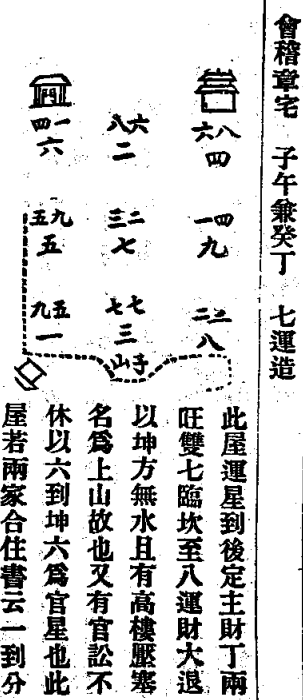 會稽章宅 子午兼癸丁 七運造
門
四一 八六 六八
六 二 四
五九 三二 一四
五 七 九
九五 七七 二三
一 三 八
山子
此屋運星到後定主財丁兩
旺雙七臨坎至八運財大退
以坤方無水且有高樓壓塞
名為上山故也又有官訟不
休以六到坤六為官星也此
屋若兩家合住書云一到分